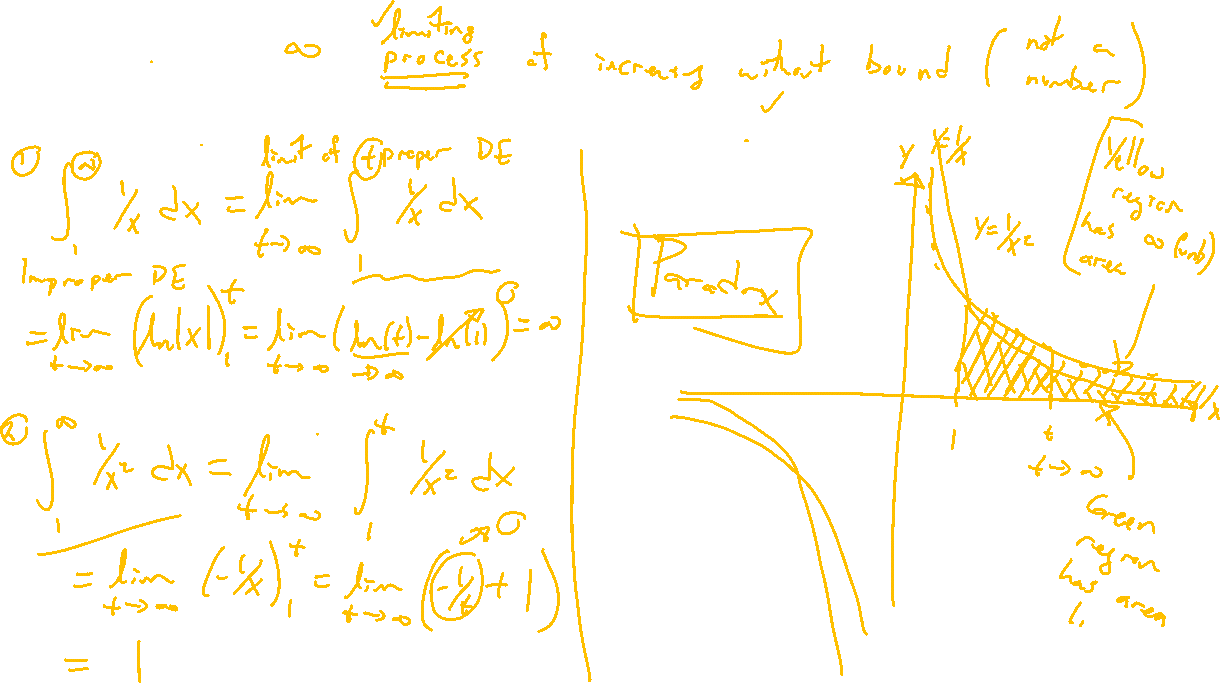 ∞ limiting process of increasing without bound (not a number)
① ∫₁^∞ 1/x dx = lim t→∞ ∫₁^t 1/x dx
limit of proper DE
Improper DE
= lim t→∞ (ln|x|)₁^t = lim t→∞ (ln(t) - ln(1)) = ∞
→∞
0
② ∫₁^∞ 1/x² dx = lim t→∞ ∫₁^t 1/x² dx
= lim t→∞ (-1/x)₁^t = lim t→∞ (-1/t + 1)
→0
= 1
Paradox
y
y=1/x
y=1/x²
Yellow
region
has ∞ (unb)
area
x
1
t
t→∞
Green
region
has area
1.